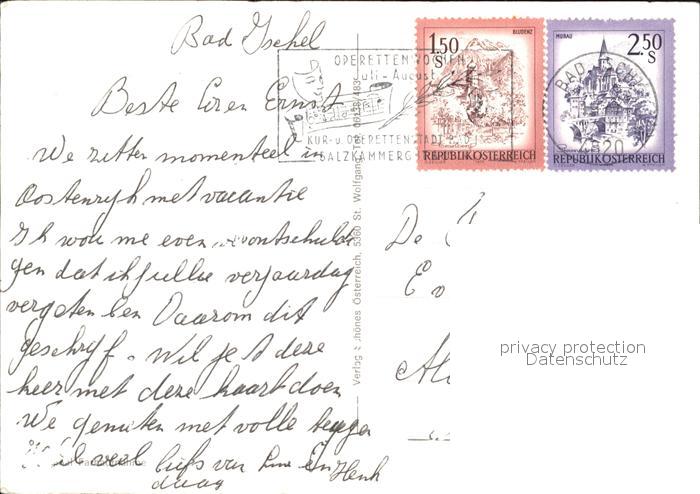 Bad Ischel
Beste Eren Ernst
We zitten momenteel in
Oostenryh met vacantie
Ik wou me even verontschuldi
gen dat ik jullie verjaardag
vergeten ben Daarom dit
geschryf. Wil je t deze
keer met deze kaart doen
We genieten met volle teugen
veel liefs van en Henk
daag
De
Ev
Al
OPERETTENWOCHEN
Juli - August
KUR- u. OPERETTENSTADT
SALZKAMMERG
BAD ISCHL
4820
1.50 S
BLUDENZ
REPUBLIK ÖSTERREICH
2.50 S
MURAU
REPUBLIK ÖSTERREICH
Verlag Schönes Österreich, 5360 St. Wolfgang, Tel. 06138/483
privacy protection
Datenschutz